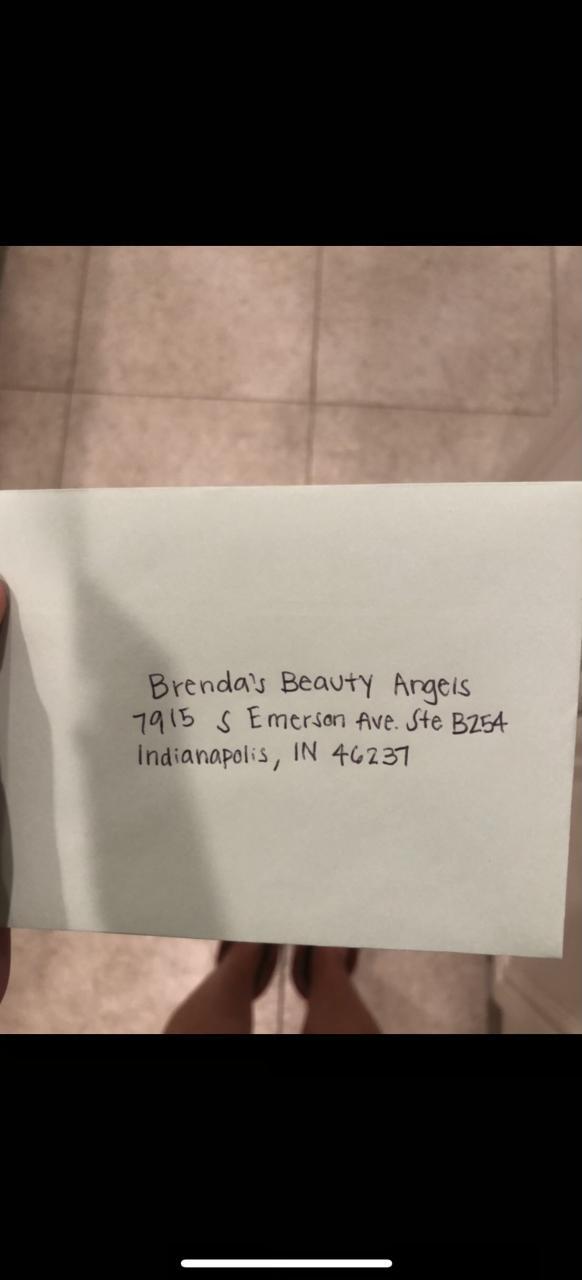 Brenda's Beauty Angels
7915 S Emerson Ave. Ste B254
Indianapolis, IN 46237